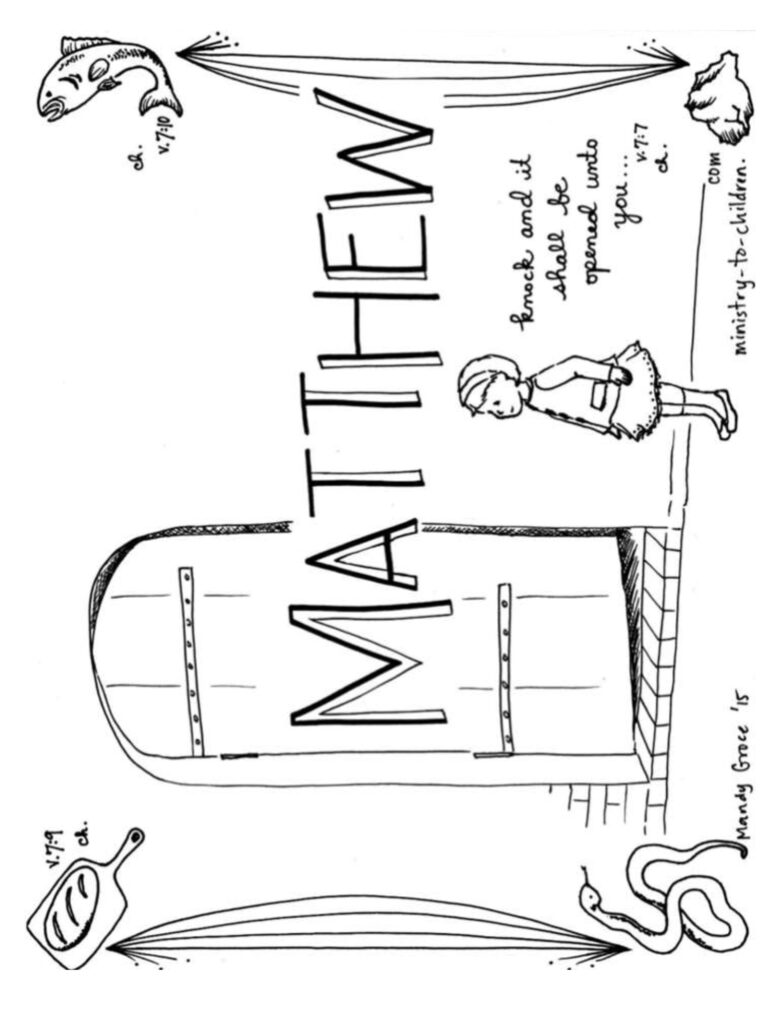 v.7:9
ch.
ch.
v.7:10
MATTHEW
knock and it
shall be
opened unto
you...
v.7:7
ch.
com
ministry-to-children.
Mandy Groce '15